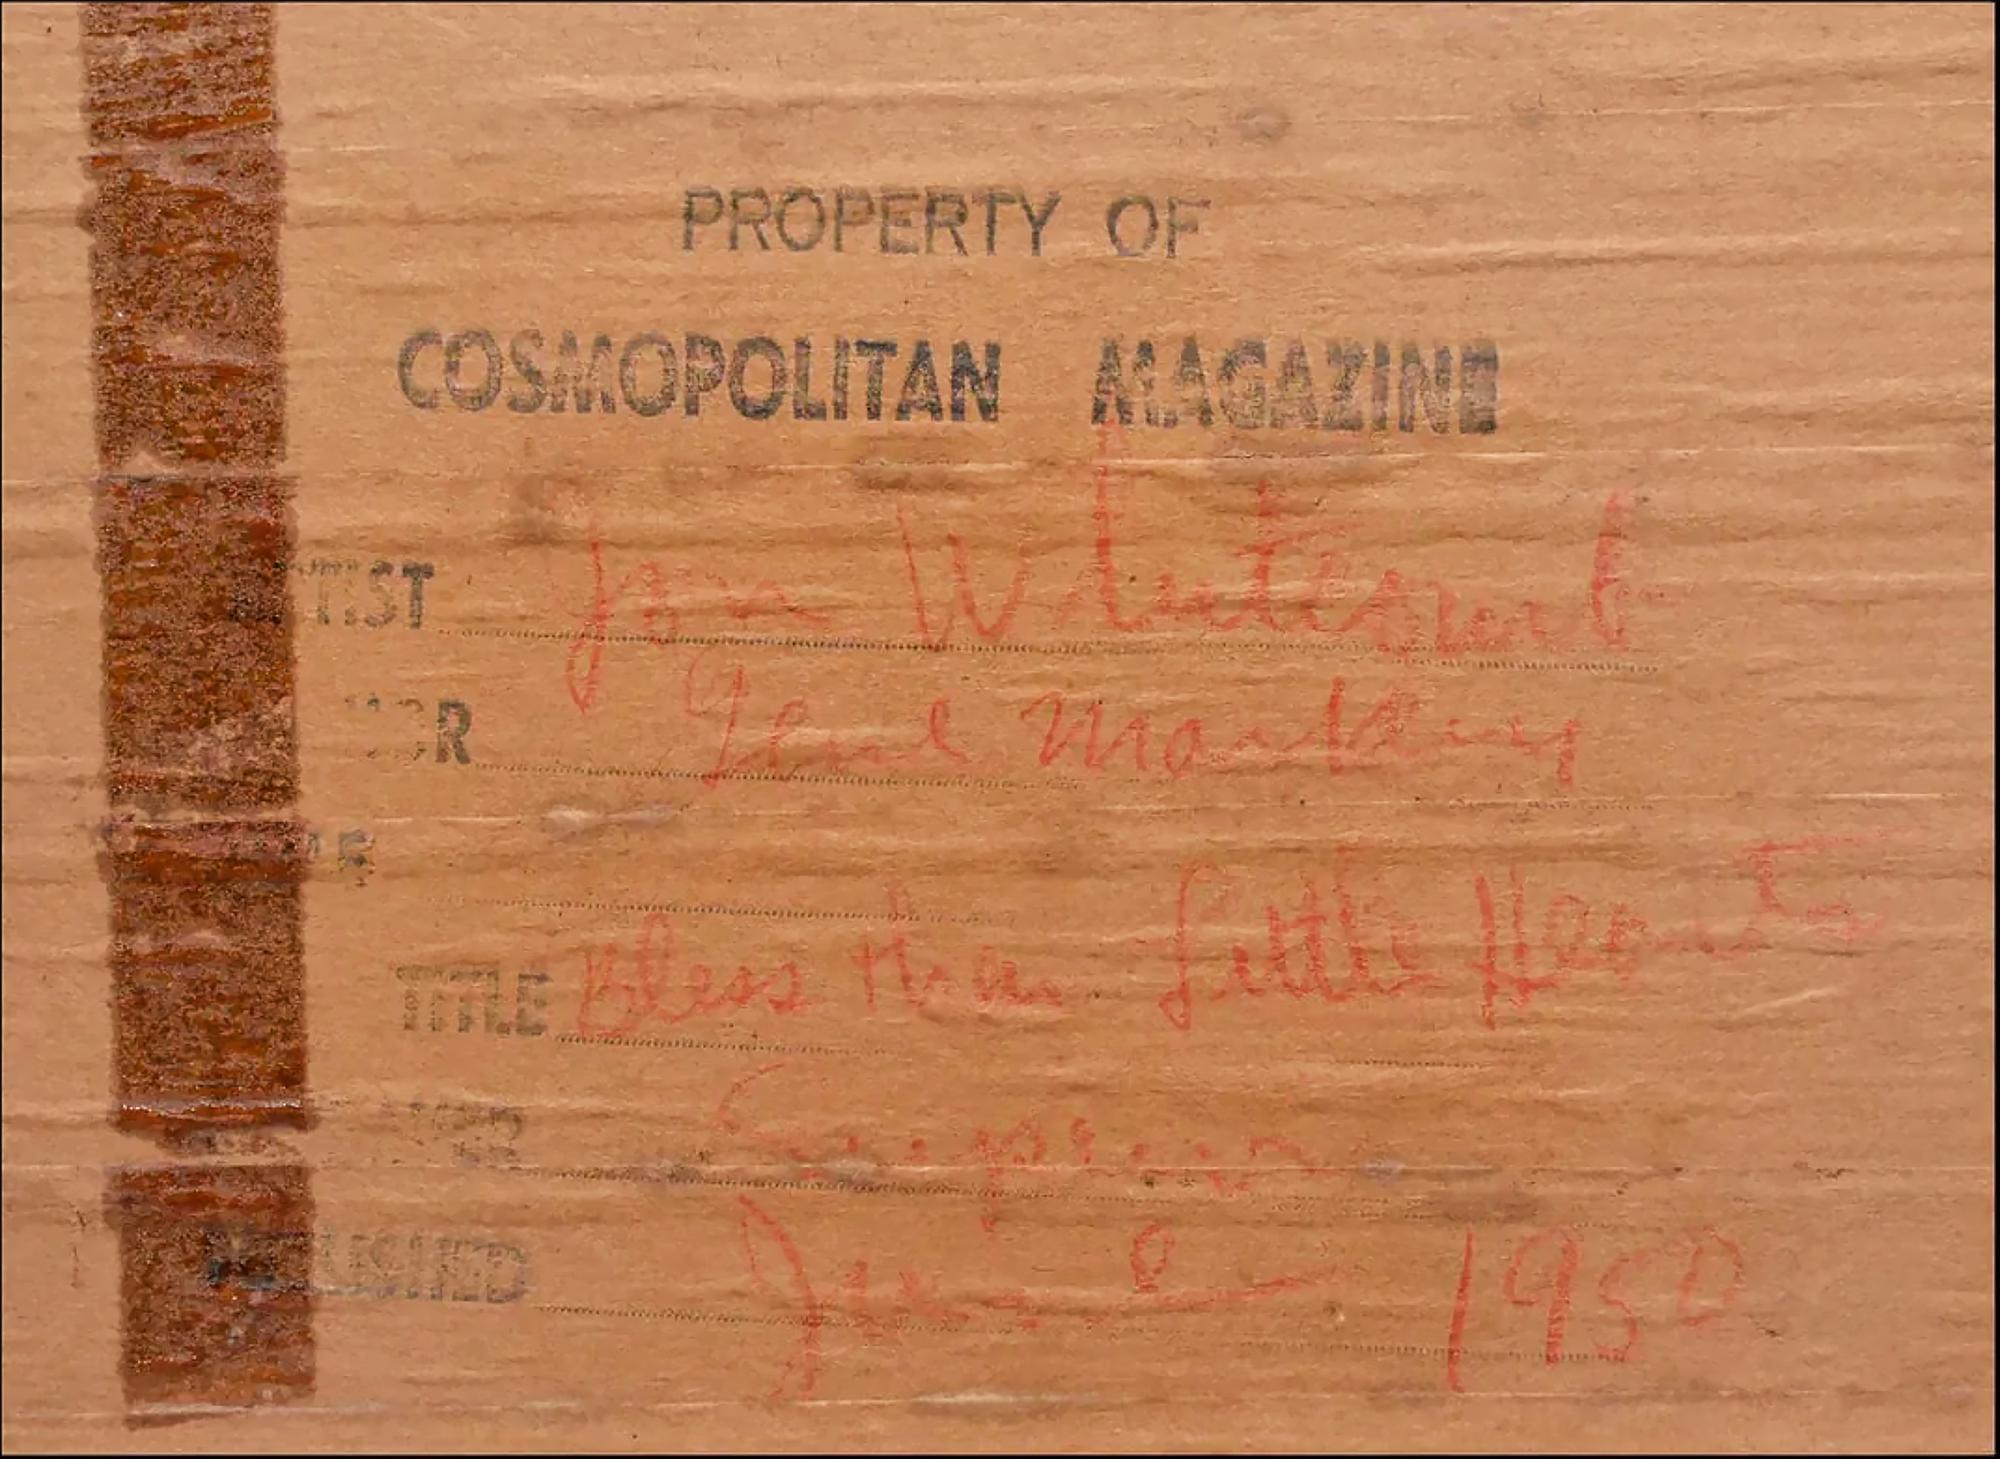 PROPERTY OF
COSMOPOLITAN MAGAZINE
ARTIST Jon Whitcomb
Gene Markey
TITLE Bless their Little Hearts
PUBLISHED June 1950